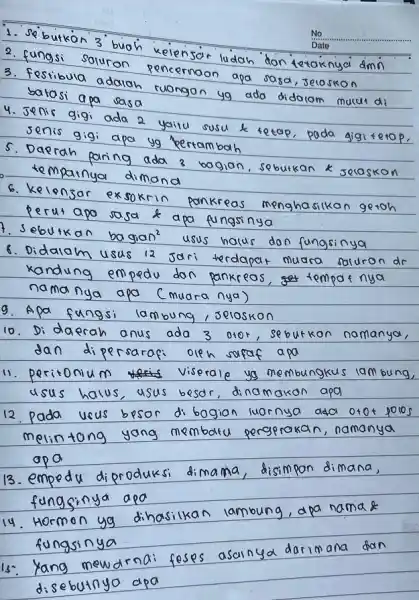 No
Date
1. sebutkan 3 buah kelenjar ludah dan letaknya dmn
2. fungsi saluran pencernaan apa saja, jelaskan
3. Festibula adalah ruangan yg ada didalam mulut di
batasi apa saja
4. Jenis gigi ada 2 yaitu susu & tetap, pada gigi tetap,
jenis gigi apa yg bertambah
5. Daerah faring ada 3 bagian, sebutkan & jelaskan
tempatnya dimana
6. Kelenjar eksokrin pankreas menghasilkan getah
perut apa saja & apa fungsinya
7. Sebutkan bagian² usus halus dan fungsinya
8. Didalam usus 12 jari terdapat muara saluran dr
kandung empedu dan pankreas, tempatnya
namanya apa (muaranya)
9. Apa fungsi lambung, jelaskan
10. Di daerah anus ada 3 otot, sebutkan namanya,
dan dipersarafi oleh saraf apa
11. peritonium viserale yg membungkus lambung,
usus halus, usus besar, dinamakan apa
12. Pada usus besar di bagian luarnya ada otot polos
melintang yang membatu pergerakan, namanya
apa
13. empedu diproduksi dimana, disimpan dimana,
fungsinya apa
14. Hormon yg dihasilkan lambung, apa nama &
fungsinya
15. Yang mewarnai feses asalnya darimana dan
disebutnya apa